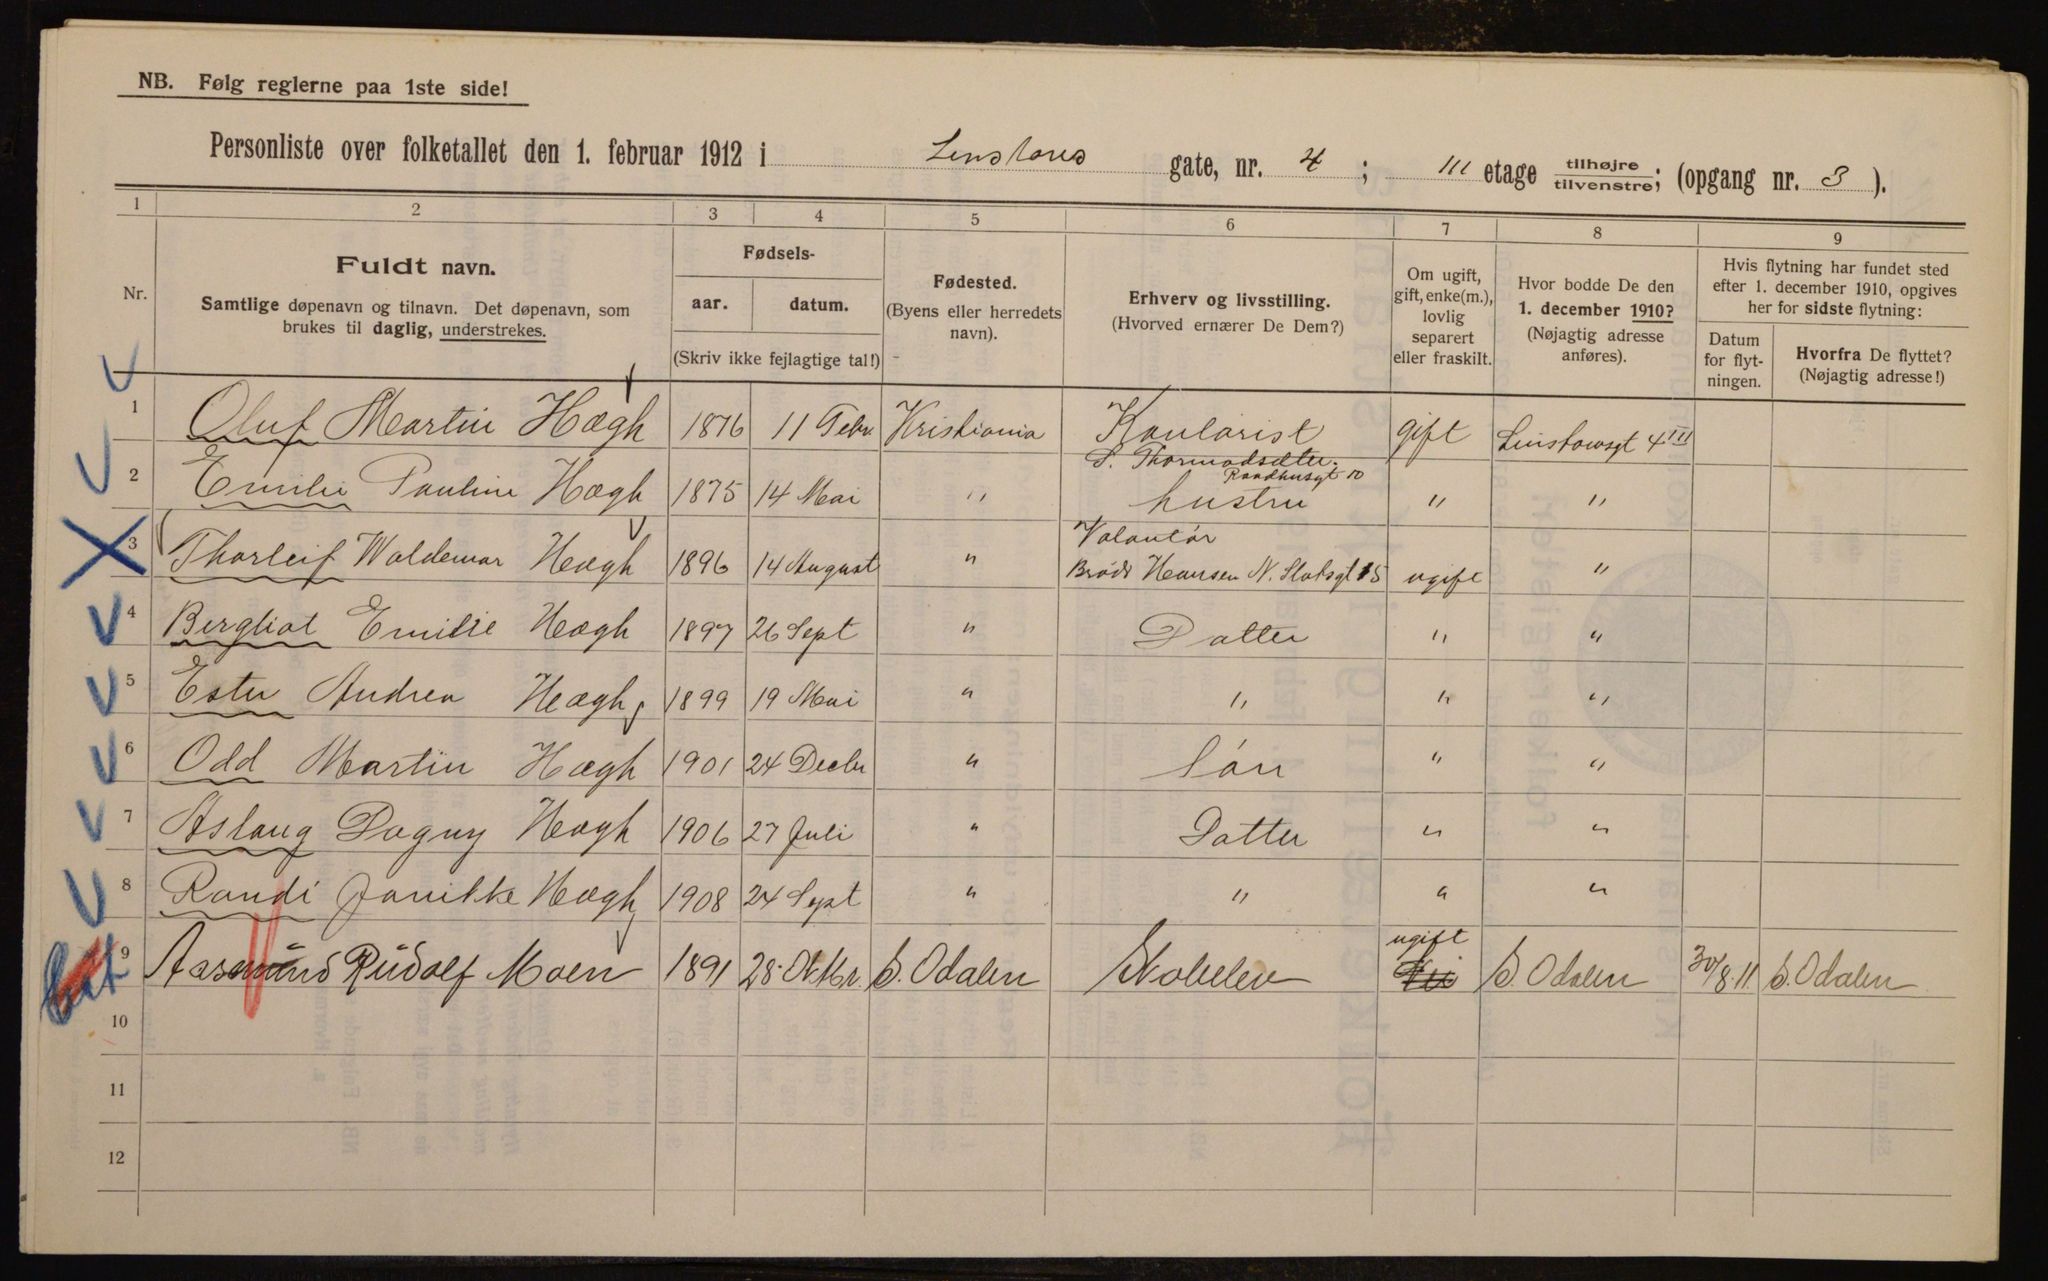 NB. Følg reglerne paa 1ste side!
Personliste over folketallet den 1. februar 1912 i Linstows gate, nr. 4 ; III etage tilhøjre tilvenstre; (opgang nr. 3 ).
1 2 3 4 5 6 7 8 9
Nr.
Fuldt navn.
Samtlige døpenavn og tilnavn. Det døpenavn, som
brukes til daglig, understrekes.
Fødsels-
aar. datum.
(Skriv ikke fejlagtige tal!)
Fødested.
(Byens eller herredets
navn).
Erhverv og livsstilling.
(Hvorved ernærer De Dem?)
Om ugift,
gift, enke(m.),
lovlig
separert
eller fraskilt.
Hvor bodde De den
1. december 1910?
(Nøjagtig adresse
anføres).
Hvis flytning har fundet sted
efter 1. december 1910, opgives
her for sidste flytning:
Datum
for flyt-
ningen.
Hvorfra De flyttet?
(Nøjagtig adresse!)
1 Oluf Martin Høegh 1876 11 Febr. Kristiania Kontorist gift Linstowsgt 4 III
S. Thormodsæter.
Raadhusgt 10
2 Emilie Pauline Høegh 1875 14 Mai " hustru " "
3 Thorleif Waldemar Høegh 1896 14 August " Volontør
Brødr Hansen N. Slotsgt 15 ugift "
4 Bergliot Emilie Høegh 1897 26 Sept " Datter " "
5 Ester Andrea Høegh 1899 19 Mai " " " "
6 Odd Martin Høegh 1901 24 Decbr " Søn " "
7 Aslaug Dagny Høegh 1906 27 Juli " Datter " "
8 Randi Jonikke Høegh 1908 24 Sept " " " "
9 Aasmund Rudolf Moen 1891 28 Oktbr. S. Odalen ugift S. Odalen 30/8.11. S. Odalen
10
11
12